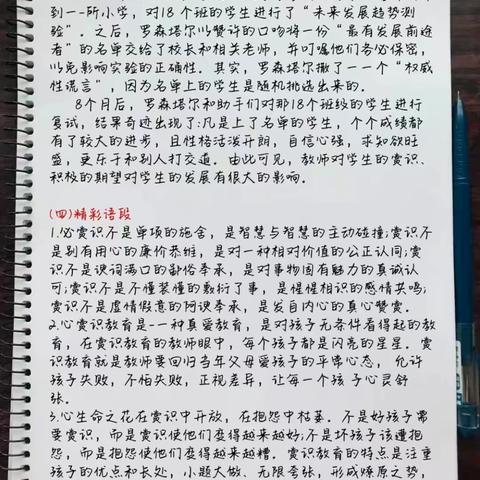 到一-所小学，对18个班的学生进行了“未来发展趋势测
验”。之后，罗森塔尔以赞许的口吻将一份“最有发展前途
者”的名单交给了校长和相关老师，并叮嘱他们务必保密，
以免影响实验的正确性。其实，罗森塔尔撒了一一个“权威
性谎言”，因为名单上的学生是随机挑选出来的。
8个月后，罗森塔尔和助手们对那18个班级的学生进行
复试，结果奇迹出现了:凡是上了名单的学生，个个成绩都
有了较大的进步，且性格活泼开朗，自信心强，求知欲旺
盛，更乐于和别人打交道。由此可见，教师对学生的赏识、
积极的期望对学生的发展有很大的影响。
(四)精彩语段
1.心赏识不是单项的施舍，是智慧与智慧的主动碰撞;赏识不
是别有用心的廉价恭维，是对一种相对价值的公正认同;赏
识不是谀词满口的鄙俗奉承，是对事物固有魅力的真诚认
可;赏识不是不懂装懂的敷衍了事，是惺惺相识的感情共鸣;
赏识不是虚情假意的阿谀奉承，是发自内心的真心赞赏。
2.心赏识教育是-一种真爱教育，是对孩子无条件看得起的教
育，在赏识教育的教师眼中，每个孩子都是闪亮的星星。赏
识教育就是教师要回归当年父母爱孩子的平常心态，允许
孩子失败，不怕失败，正视差异，让每一个孩子心灵舒
张。
3.心生命之花在赏识中开放，在抱怨中枯萎。不是好孩子需
要赏识，而是赏识使他们变得越来越好;不是坏孩子该遭抱
怨，而是抱怨使他们变得越来越糟。赏识教育的特点是注重
孩子的优点和长处，小题大做、无限夸张，形成燎原之势，